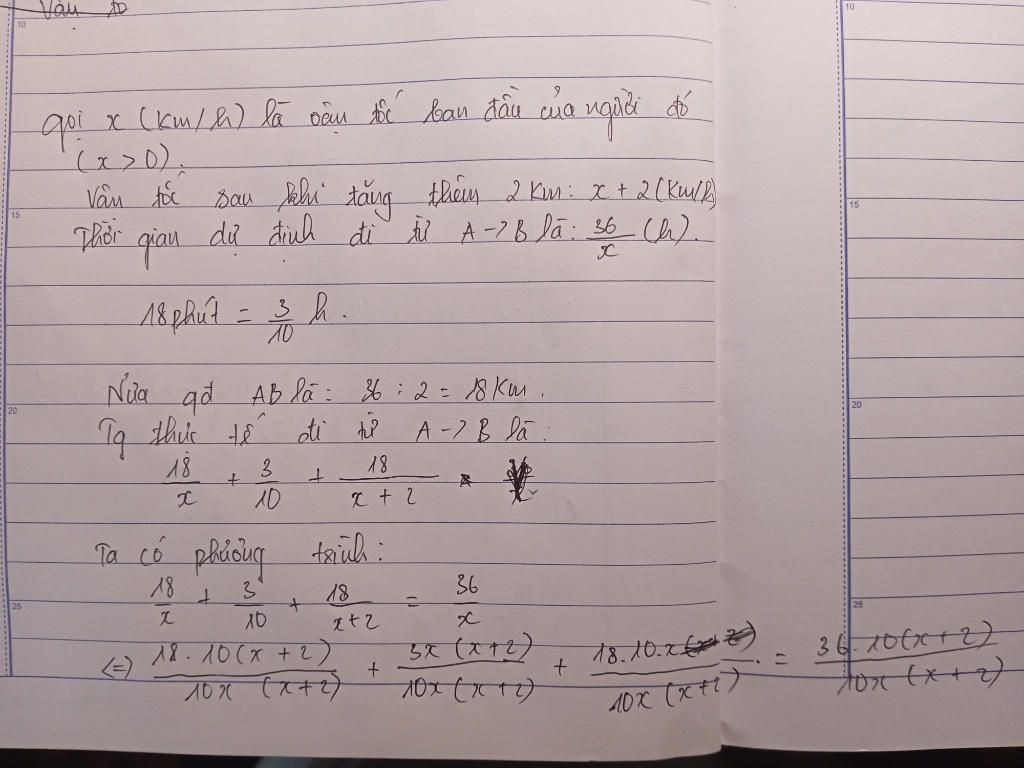 Vận tố
10
10
gọi x (km/h) là vận tốc ban đầu của người đó
(x > 0).
Vận tốc sau khi tăng thêm 2 Km: x + 2 (Km/h)
15
15
Thời gian dự định đi từ A -> B là: 36/x (h).
18 phút = 3/10 h.
Nửa qđ AB là: 36 : 2 = 18 Km.
20
20
Tg thực tế đi từ A -> B là:
18/x + 3/10 + 18/(x + 2)
Ta có phương trình:
25
25
18/x + 3/10 + 18/(x+2) = 36/x
<=> 18.10(x + 2)/10x (x+2) + 3x (x+2)/10x (x+2) + 18.10.x/10x (x+2) . = 36.10(x+2)/10x (x+2)